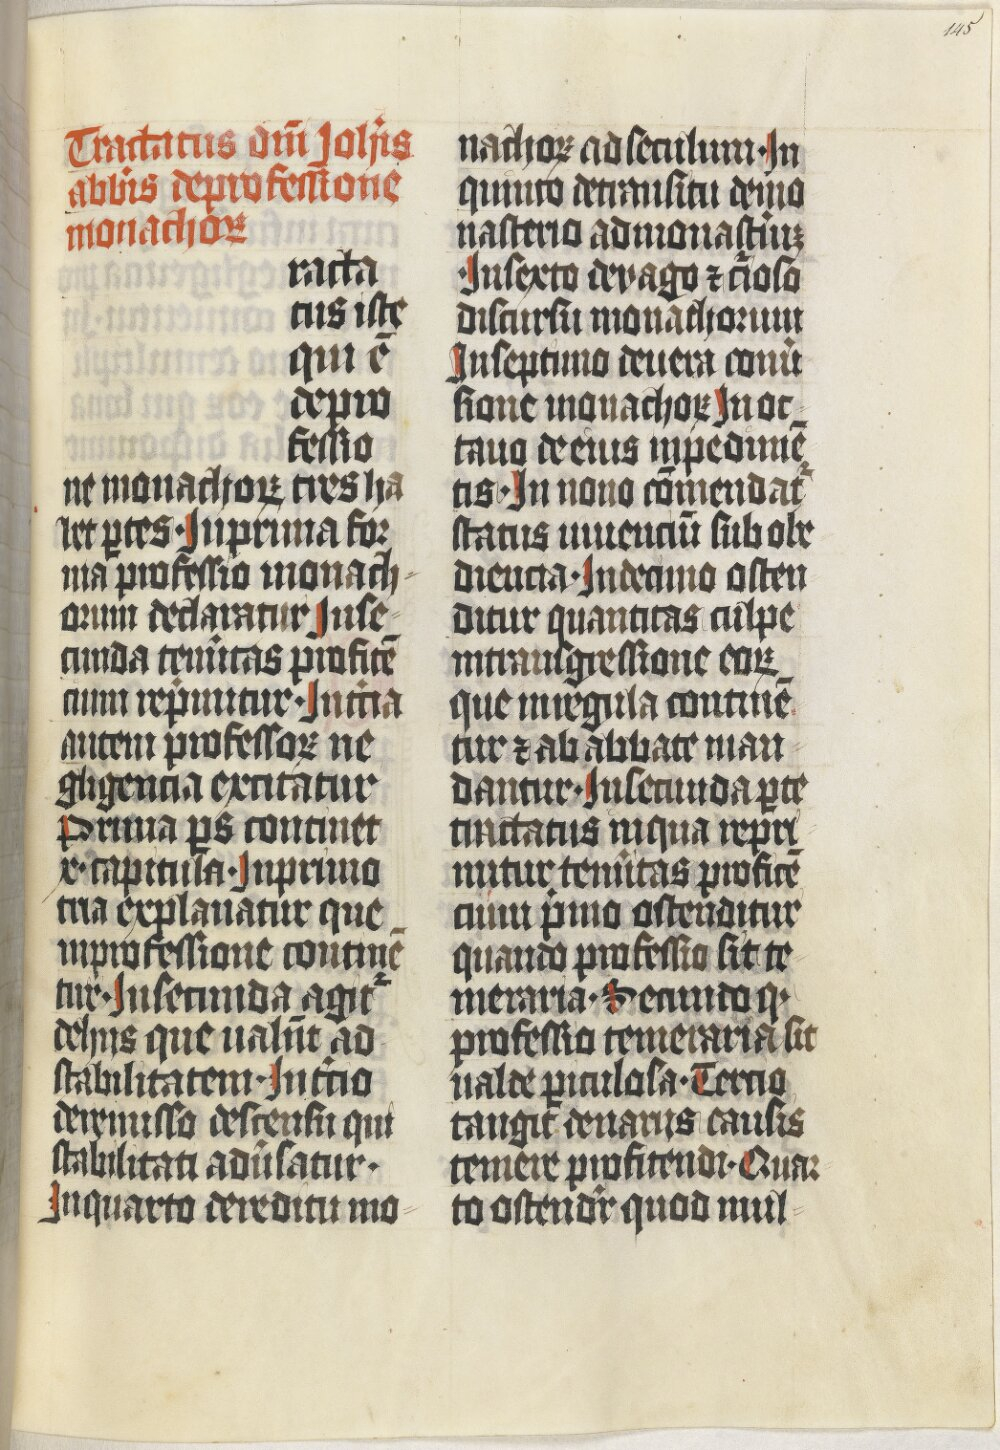 145
Tractatus dn̄i Joh̄is
abb̄is de professione
monachoꝝ
racta
tus iste
qui ē
de pro
fessio
ne monachoꝝ tres ha
bet ꝑtes · In prima for
ma professio monach
orum declaratur In se
cunda temͥtas profitē
cium rep̄mitur · In tͥcia
autem professoꝝ ne
gligencia excitatur
Prima ꝑs continet
x · capitula · In primo
tria explanatur que
in professione continē
tur · In secunda agitᷣ
de hijs que ualn̄t ad
stabilitatem · In tͥcio
de remisso descensu qui
stabilitati adūsatur ·
In quarto de reditu mo
nachoꝝ ad seculum · In
quinto de transitu de mo
nasterio ad monast̄iuꝫ
· In sexto de vago ⁊ cͥioso
discursu monachorum
In septimo de uera conū
sione monachoꝝ In oc
tauo de eius inpedimē
tis · In nono cōmendatᷣ
status uiuenciū sub obe
diencia · In decimo osten
ditur quantitas culpe
in transgressione eoꝝ
que in regula continē
tur ⁊ ab abbate man
dantur · In secunda ꝑte
tractatus in qua repri
mitur temͥitas profitē
cium p̄mo ostenditur
quando professio sit te
meraria · Secundo ꝙ
professio temeraria sit
ualde ꝑiculosa · Tercio
tangit᷑ de uarijs causis
temere profitendi · Quar
to ostendr̄ quod mul